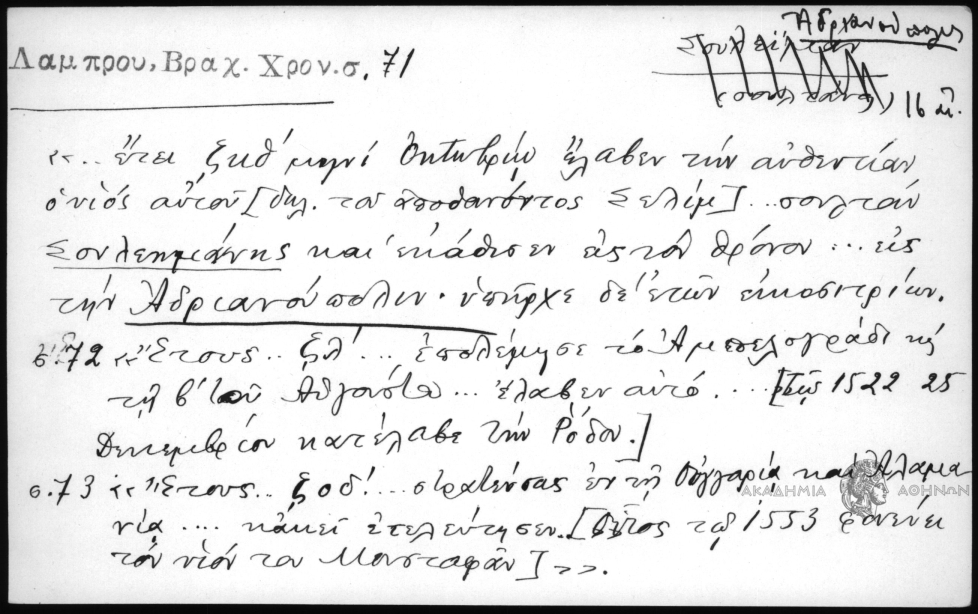 Ἀδριανούπολις
Λαμπρου, Βραχ. Χρον. σ. 71
Σουλεϊμάν
(σουλτάνος) 16 αἰ.
«.. ἔτει ζκθ' μηνί Ὀκτωβρίῳ ἔλαβεν τήν αὐθεντίαν
ὁ υἱός αὐτοῦ [δηλ. του ἀποθανόντος Σελίμ] .. σουλτάν
Σουλεημάνης καί ἐκάθισεν εἰς τόν θρόνον ... εἰς
τήν Ἀδριανούπολιν. ὑπῆρχε δέ ἐτῶν εἰκοσιτριῶν.
σ. 72 «Ἔτους .. ζλ' ... ἐπολέμησε τό Ἀμπελογράδι κῂ
τῇ β' τοῦ Αὐγούστου ... ἔλαβεν αὐτό. ... [τῷ 1522 25
Δεκεμβρίου κατέλαβε τήν Ῥόδον.]
σ. 73 «Ἔτους .. ζοδ' ... στρατεύσας ἐν τῇ Οὑγγαρίᾳ καί Ἀλαμα
νίᾳ .... κἀκεῖ ἐτελεύτησεν. [Οὗτος τῷ 1553 φονεύει
τόν υἱόν του Μουσταφᾶν] >>.
ΑΚΑΔΗΜΙΑ ΑΘΗΝΩΝ